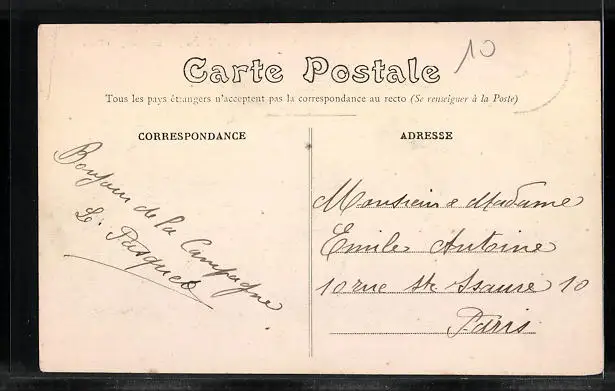 10
Carte Postale
Tous les pays étrangers n'acceptent pas la correspondance au recto (Se renseigner à la Poste)
CORRESPONDANCE
Bonjour de la Campagne
L. Pasquet
ADRESSE
Monsieur & Madame
Emile Antoine
10 rue Ste Isaure 10
Paris